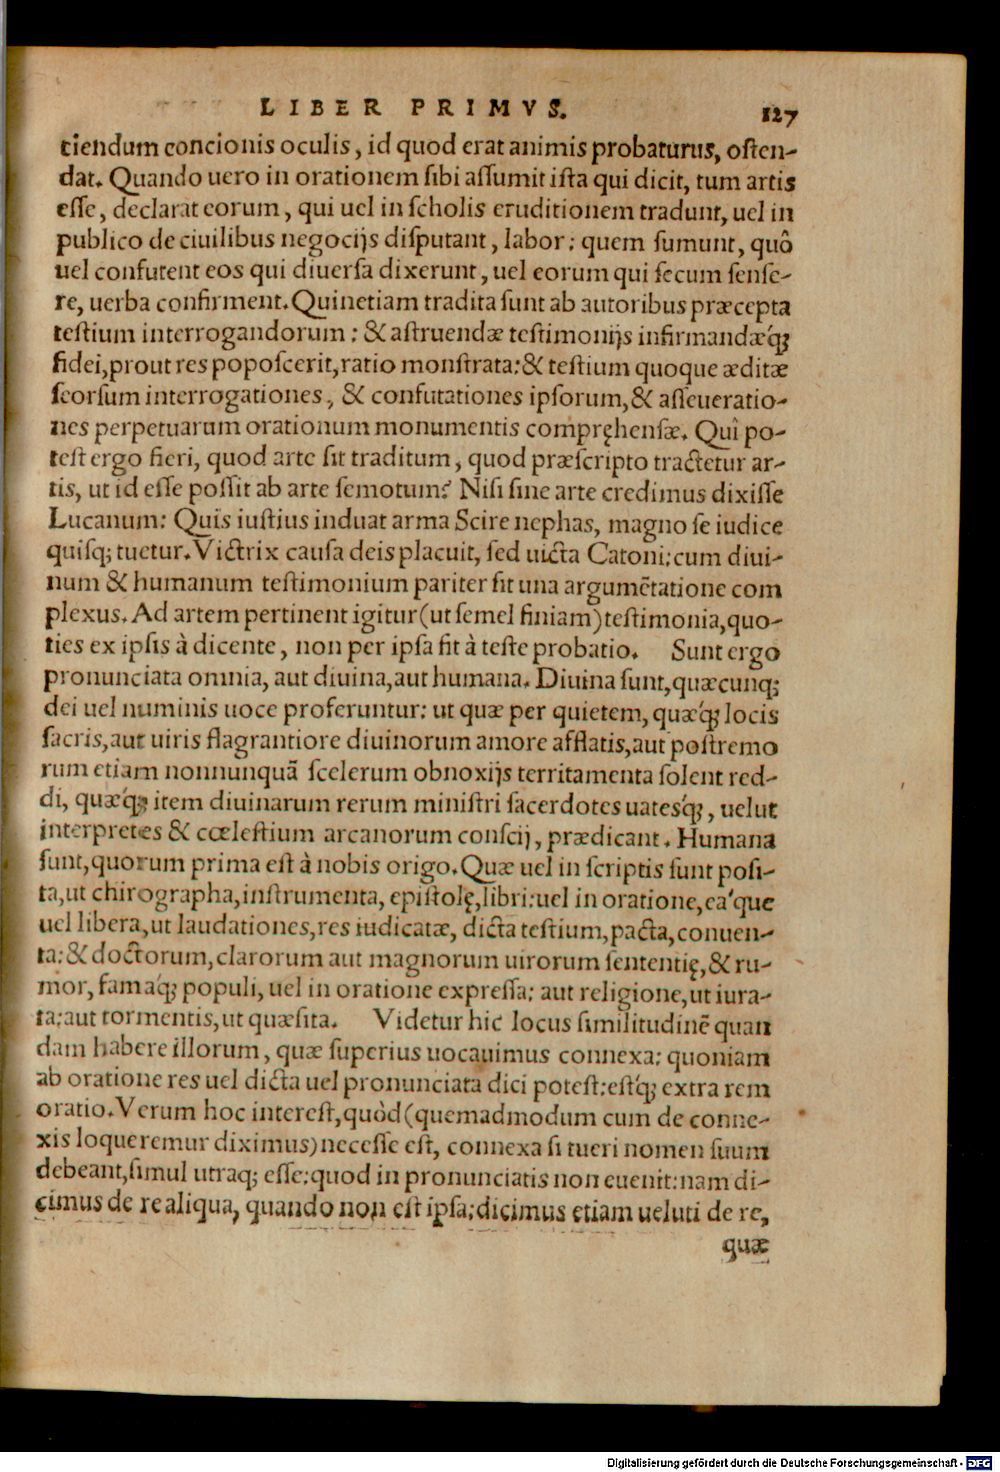 LIBER PRIMVS. 127
tiendum concionis oculis, id quod erat animis probaturus, osten-
dat. Quando uero in orationem sibi assumit ista qui dicit, tum artis
esse, declarat eorum, qui uel in scholis eruditionem tradunt, uel in
publico de ciuilibus negocijs disputant, labor: quem sumunt, quô
uel confutent eos qui diuersa dixerunt, uel eorum qui secum sense-
re, uerba confirment. Quinetiam tradita sunt ab autoribus præcepta
testium interrogandorum: & astruendæ testimonijs infirmandæq́;
fidei, prout res poposcerit, ratio monstrata: & testium quoque æditæ
seorsum interrogationes, & confutationes ipsorum, & asseueratio-
nes perpetuarum orationum monumentis compręhensæ. Quî po-
test ergo fieri, quod arte sit traditum, quod præscripto tractetur ar-
tis, ut id esse possit ab arte semotum? Nisi sine arte credimus dixisse
Lucanum: Quis iustius induat arma Scire nephas, magno se iudice
quisq; tuetur. Victrix causa deis placuit, sed uicta Catoni: cum diui-
num & humanum testimonium pariter sit una argumẽtatione com
plexus. Ad artem pertinent igitur (ut semel finiam) testimonia, quo-
ties ex ipsis à dicente, non per ipsa fit à teste probatio. Sunt ergo
pronunciata omnia, aut diuina, aut humana. Diuina sunt, quæcunq;
dei uel numinis uoce proferuntur: ut quæ per quietem, quæq́; locis
sacris, aut uiris flagrantiore diuinorum amore afflatis, aut postremo
rum etiam nonnunquã scelerum obnoxijs territamenta solent red-
di, quæq́; item diuinarum rerum ministri sacerdotes uatesq́;, uelut
interpretes & cœlestium arcanorum conscij, prædicant. Humana
sunt, quorum prima est à nobis origo. Quæ uel in scriptis sunt posi-
ta, ut chirographa, instrumenta, epistolę, libri: uel in oratione, ea'que
uel libera, ut laudationes, res iudicatæ, dicta testium, pacta, conuen-
ta: & doctorum, clarorum aut magnorum uirorum sententię, & ru-
mor, famaq́; populi, uel in oratione expressa: aut religione, ut iura-
ta: aut tormentis, ut quæsita. Videtur hic locus similitudinẽ quan
dam habere illorum, quæ superius uocauimus connexa: quoniam
ab oratione res uel dicta uel pronunciata dici potest: estq́; extra rem
oratio. Verum hoc interest, quòd (quemadmodum cum de conne-
xis loqueremur diximus) necesse est, connexa si tueri nomen suum
debeant, simul utraq; esse: quod in pronunciatis non euenit: nam di-
cimus de re aliqua, quando non est ipsa: dicimus etiam ueluti de re,
quæ
Digitalisierung gefördert durch die Deutsche Forschungsgemeinschaft - DFG